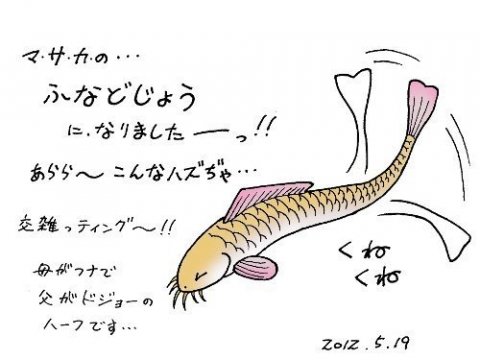 マ・サ・カ・の・・・
ふなどじょう
に、なりましたーーっ!!
あらら〜 こんなハズぢゃ・・・
交雑っティング〜!!
母がフナで
父がドジョーの
ハーフです・・・
くね
くね
2012.5.19